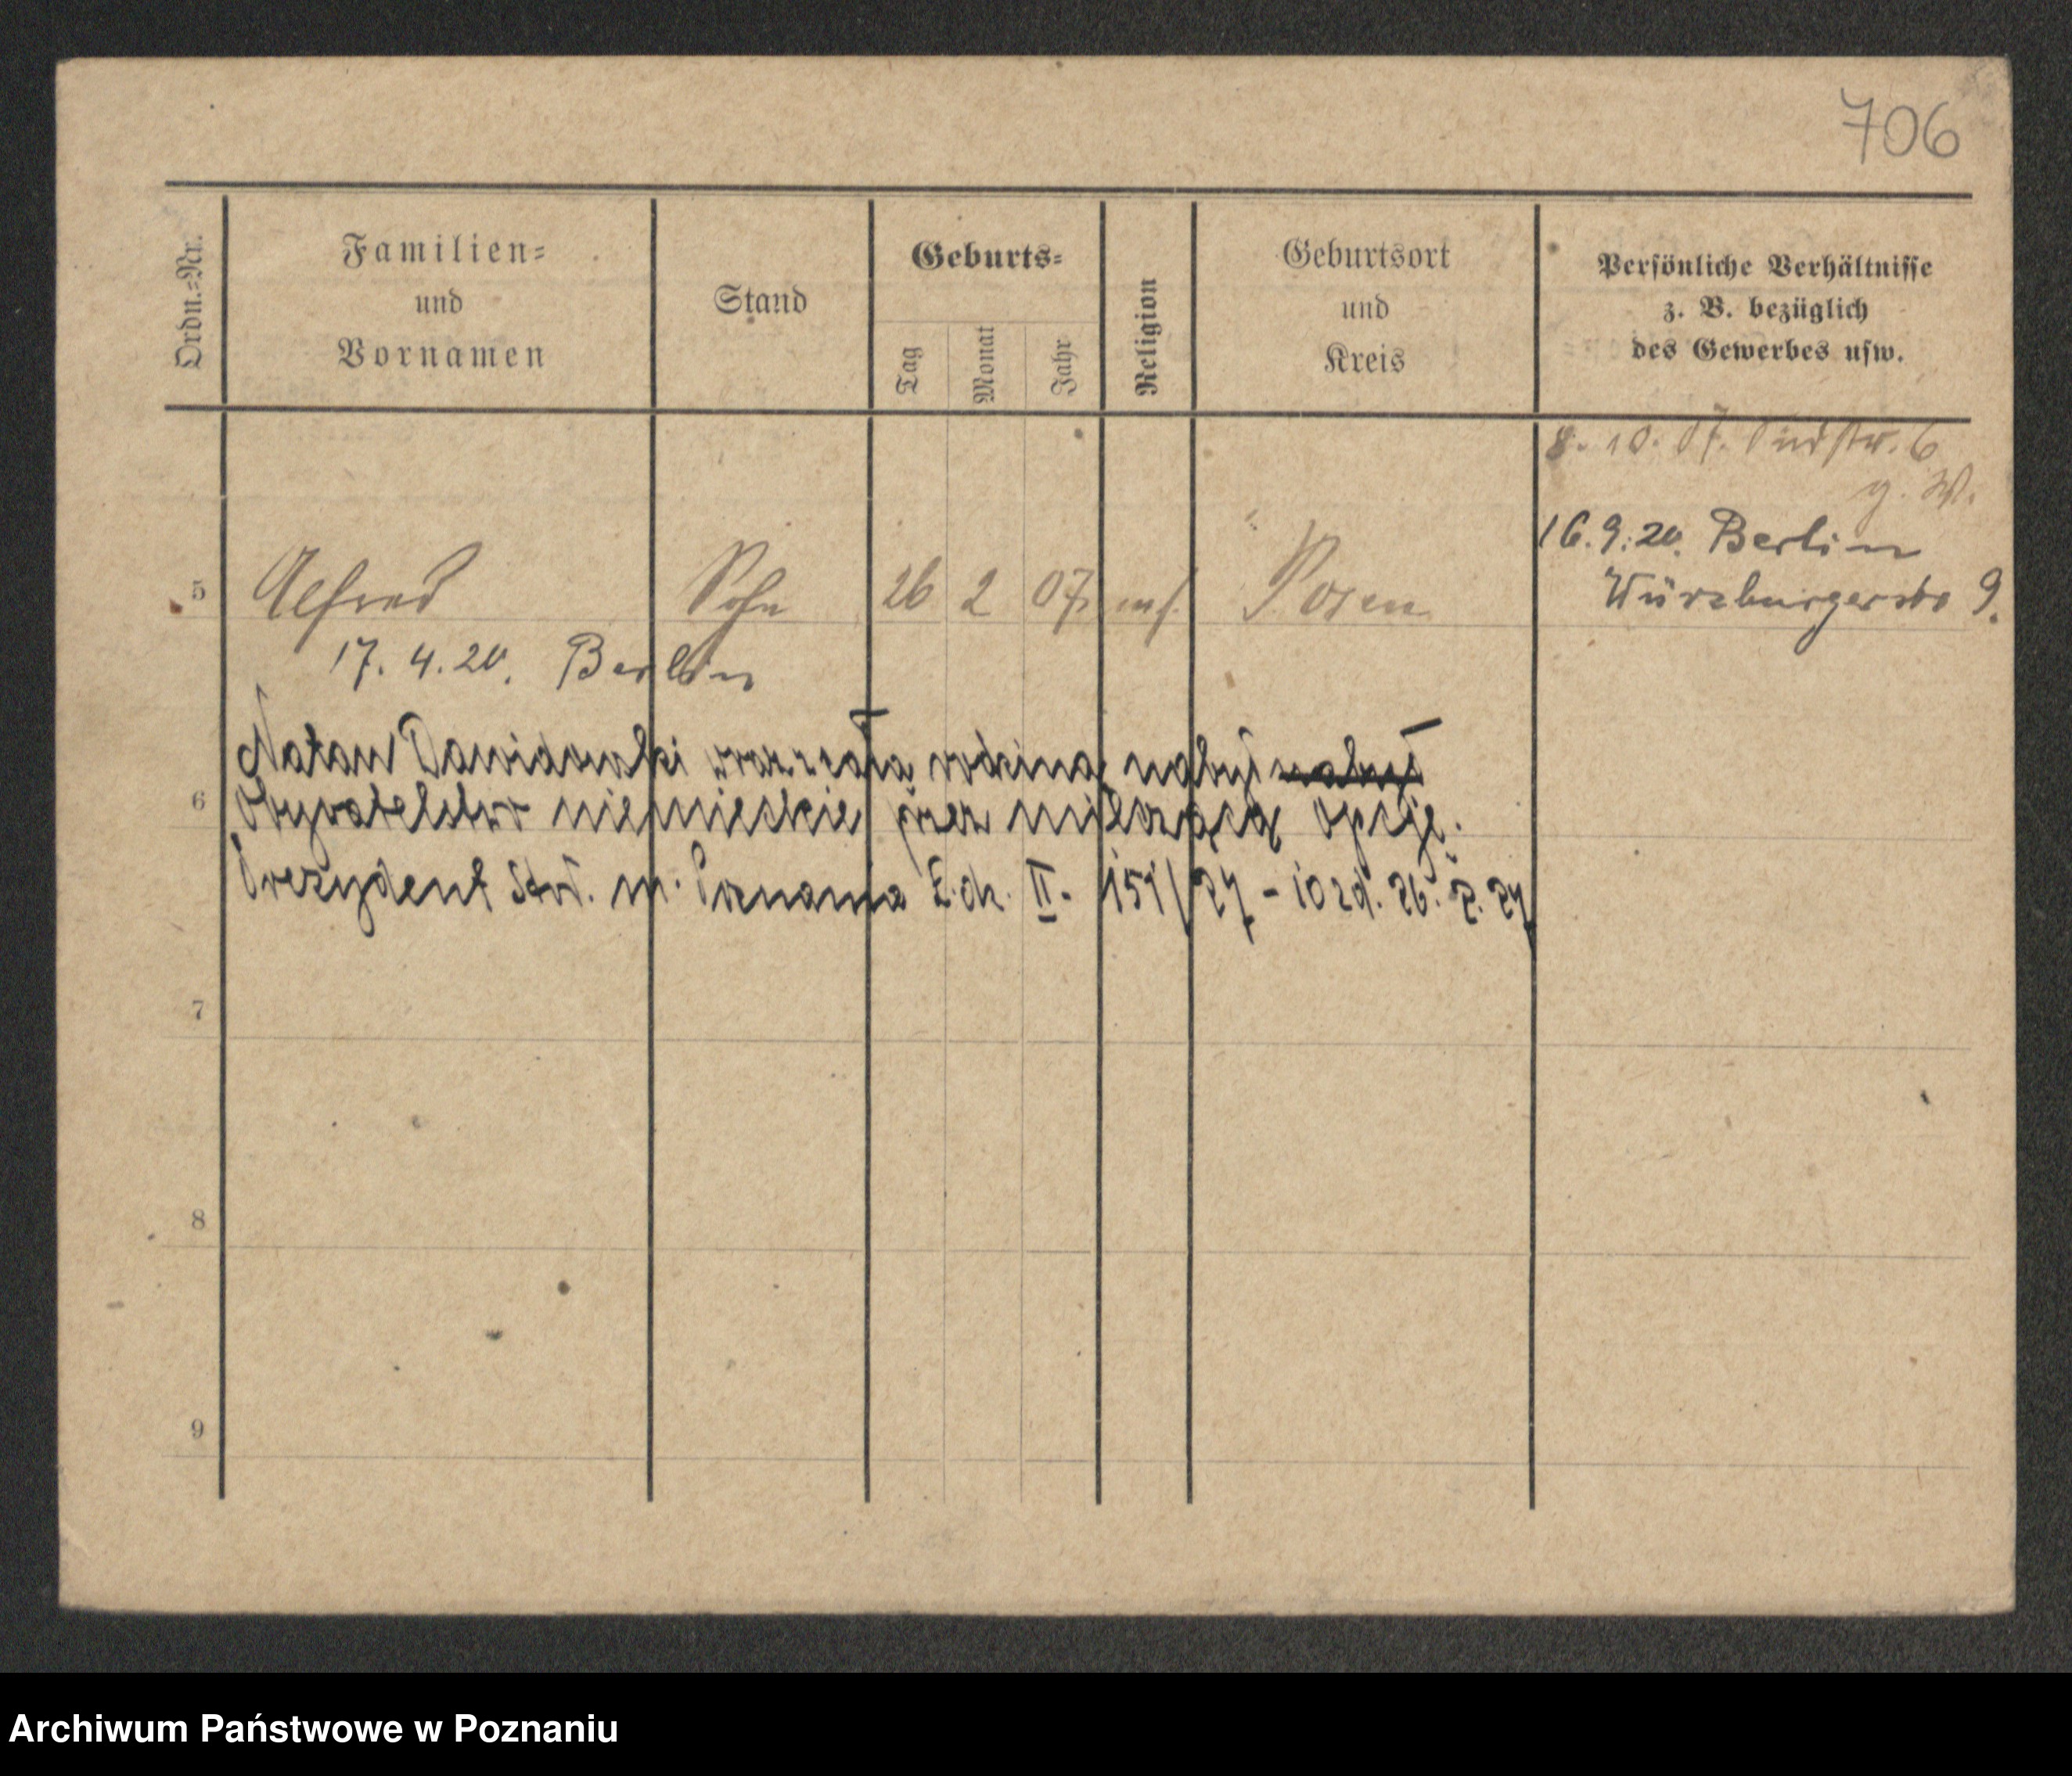 706
Ordn.-Nr.
Familien-
und
Vornamen
Stand
Geburts-
Tag
Monat
Jahr
Religion
Geburtsort
und
Kreis
Persönliche Verhältnisse
z. B. bezüglich
des Gewerbes usw.
8. 10. 07. 6
g. W.
16.9.20. Berlin
Würzburgerstr 9.
5 Alfred Sohn 26 2 07 Posen
17. 4. 20. Berlin
Natan Dawidowski wraz z całą rodziną nabył nabył
6 Obywatelstwo niemieckie przez milczącą opcję.
Prezydent Stoł. m. Poznania L.dz. II. 151/27 - 10 zd. 26. 2. 27
7
8
9
Archiwum Państwowe w Poznaniu